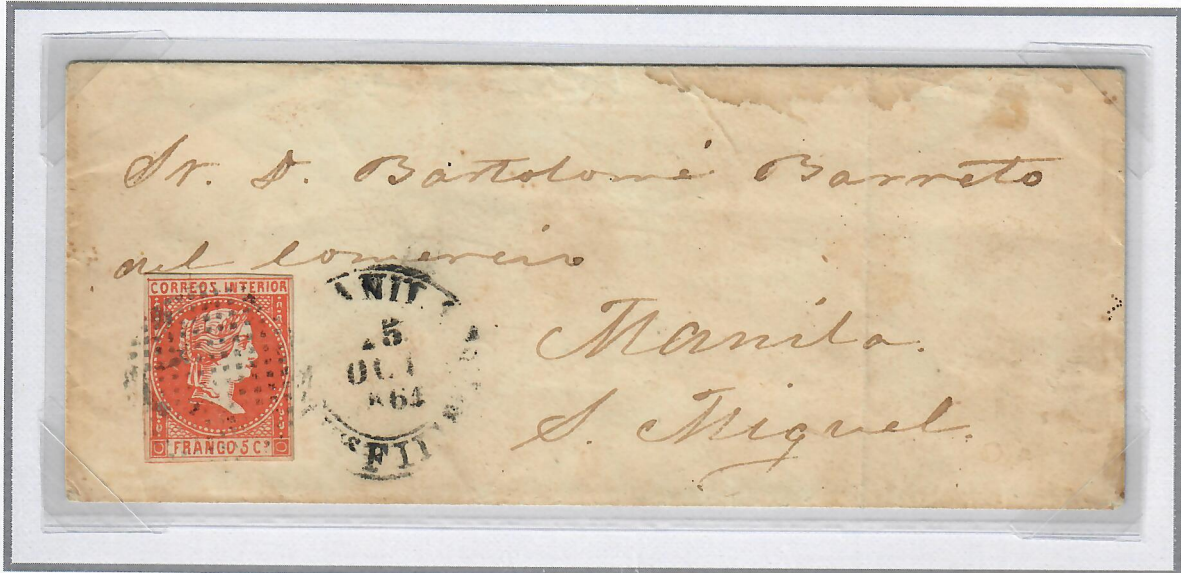 Sr. D. Bartolomé Barreto
del comercio
Manila.
S. Miguel.
CORREOS INTERIOR
FRANCO·5 Cs
ANIL
5
OCT
864
FII